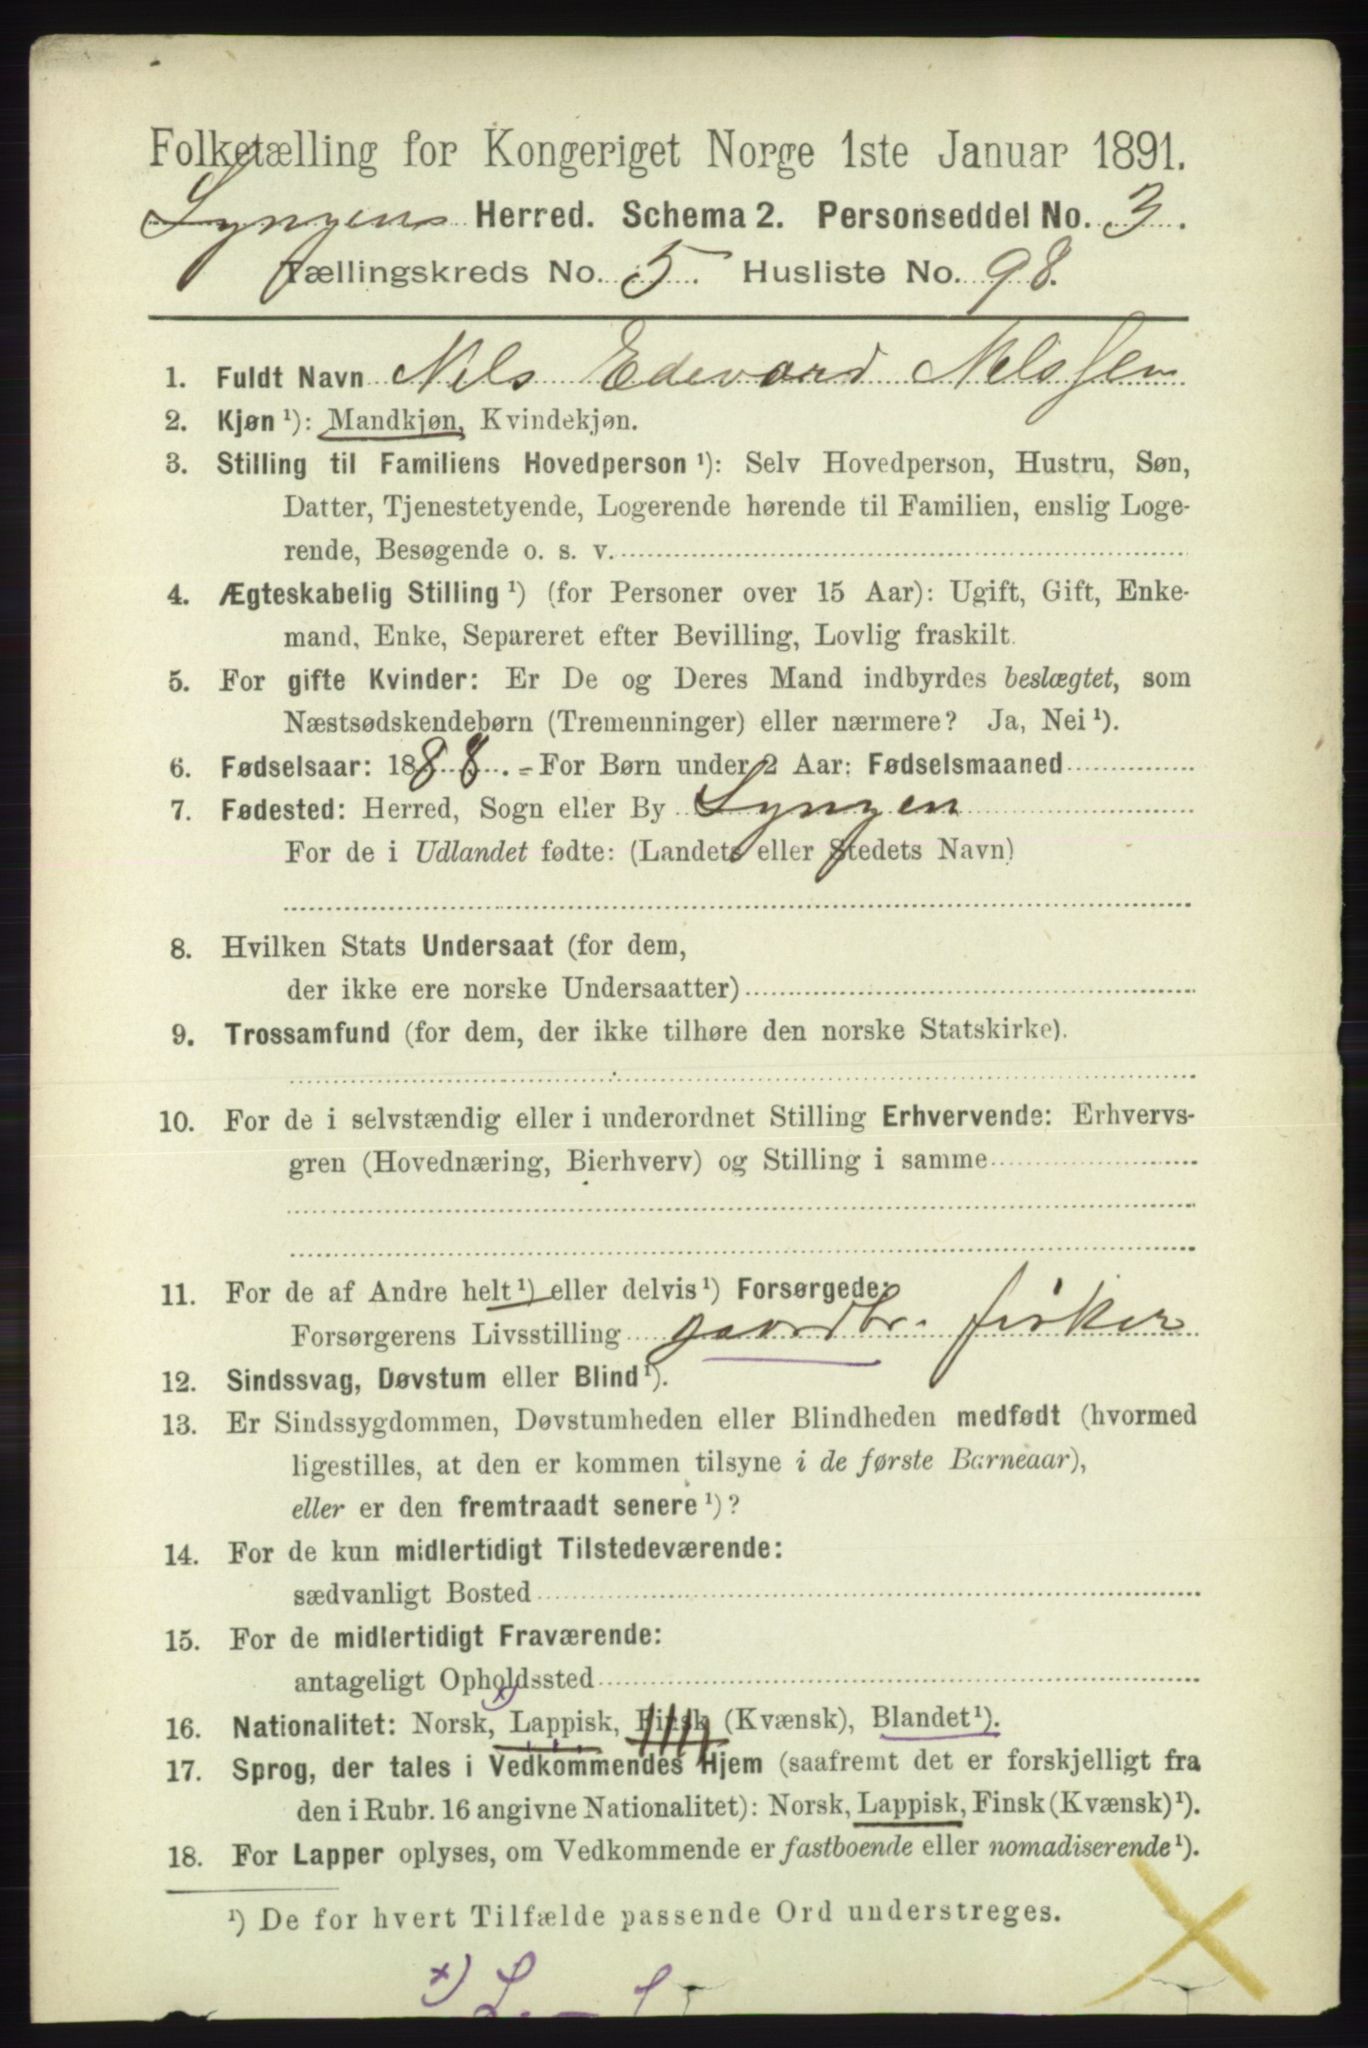 Folketælling for Kongeriget Norge 1ste Januar 1891.
Lyngens Herred. Schema 2. Personseddel No. 3.
Tællingskreds No. 5. Husliste No. 98.
1. Fuldt Navn Nils Edevard Nelssen
2. Kjøn ¹): Mandkjøn, Kvindekjøn.
3. Stilling til Familiens Hovedperson ¹): Selv Hovedperson, Hustru, Søn,
Datter, Tjenestetyende, Logerende hørende til Familien, enslig Loge-
rende, Besøgende o. s. v.
4. Ægteskabelig Stilling ¹) (for Personer over 15 Aar): Ugift, Gift, Enke-
mand, Enke, Separeret efter Bevilling, Lovlig fraskilt.
5. For gifte Kvinder: Er De og Deres Mand indbyrdes beslægtet, som
Næstsødskendebørn (Tremenninger) eller nærmere? Ja, Nei ¹).
6. Fødselsaar: 1888. - For Børn under 2 Aar: Fødselsmaaned
7. Fødested: Herred, Sogn eller By Lyngen
For de i Udlandet fødte: (Landets eller Stedets Navn)
8. Hvilken Stats Undersaat (for dem,
der ikke ere norske Undersaatter)
9. Trossamfund (for dem, der ikke tilhøre den norske Statskirke).
10. For de i selvstændig eller i underordnet Stilling Erhvervende: Erhvervs-
gren (Hovednæring, Bierhverv) og Stilling i samme
11. For de af Andre helt ¹) eller delvis ¹) Forsørgede:
Forsørgerens Livsstilling gaardbr. fisker
12. Sindssvag, Døvstum eller Blind ¹).
13. Er Sindssygdommen, Døvstumheden eller Blindheden medfødt (hvormed
ligestilles, at den er kommen tilsyne i de første Barneaar),
eller er den fremtraadt senere ¹)?
14. For de kun midlertidigt Tilstedeværende:
sædvanligt Bosted
15. For de midlertidigt Fraværende:
antageligt Opholdssted
x)
16. Nationalitet: Norsk, Lappisk, Finsk (Kvænsk), Blandet ¹).
17. Sprog, der tales i Vedkommendes Hjem (saafremt det er forskjelligt fra
den i Rubr. 16 angivne Nationalitet): Norsk, Lappisk, Finsk (Kvænsk) ¹).
18. For Lapper oplyses, om Vedkommende er fastboende eller nomadiserende ¹).
¹) De for hvert Tilfælde passende Ord understreges.
x)